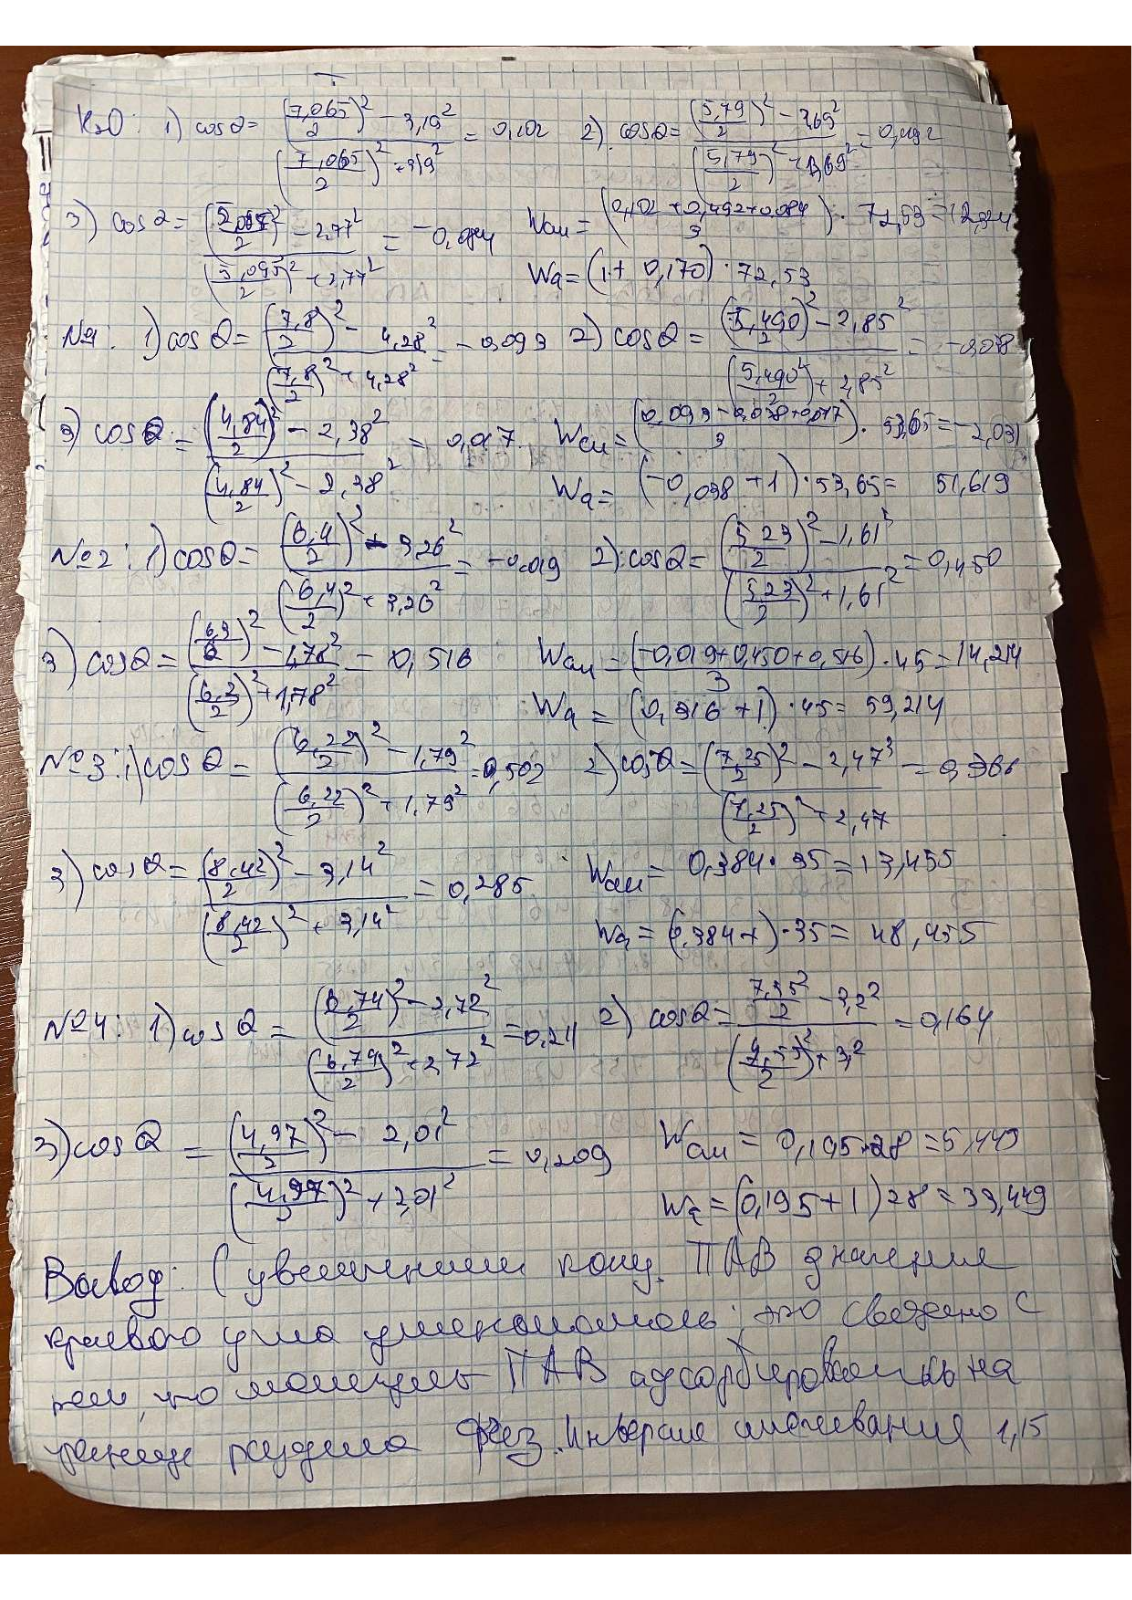 H₂O: 1) cosθ = ((7,065/2)² − 3,19²)/((7,065/2)² + 3,19²) = 0,102 2) cosθ = ((5,79/2)² − 1,69²)/((5,79/2)² + 1,69²) = 0,492
3) cosθ = ((5,095/2)² − 2,77²)/((5,095/2)² + 2,77²) = −0,084 Wсм = ((0,102 + 0,492 + 0,084)/3) · 72,53 = 12,324
Wа = (1 + 0,170) · 72,53
№1: 1) cosθ = ((7,8/2)² − 4,28²)/((7,8/2)² + 4,28²) = −0,093 2) cosθ = ((5,490/2)² − 2,85²)/((5,490/2)² + 2,85²) = −0,038
3) cosθ = ((4,84/2)² − 2,38²)/((4,84/2)² − 2,38²) = 0,017. Wсм = ((0,093 − 0,038 + 0,017)/3) · 53,65 = −2,031
Wа = (−0,038 + 1) · 53,65 = 51,619
№2: 1) cosθ = ((6,4/2)² − 3,26²)/((6,4/2)² + 3,26²) = −0,019 2) cosθ = ((5,23/2)² − 1,61²)/((5,23/2)² + 1,61²) = 0,450
3) cosθ = ((6,3/2)² − 1,78²)/((6,3/2)² + 1,78²) = 0,516 Wсм = ((−0,019 + 0,450 + 0,516)/3) · 45 = 14,214
Wа = (0,316 + 1) · 45 = 59,214
№3: 1) cosθ = ((6,22/2)² − 1,79²)/((6,22/2)² + 1,79²) = 0,502 2) cosθ = ((7,25/2)² − 2,47²)/((7,25/2)² + 2,47) = 0,366
3) cosθ = ((8,42/2)² − 3,14²)/((8,42/2)² + 3,14²) = 0,285 Wсм = 0,384 · 35 = 13,455
Wа = (0,384 + 1) · 35 = 48,455
№4: 1) cosθ = ((6,74/2)² − 2,72²)/((6,74/2)² + 2,72²) = 0,211 2) cosθ = (7,55²/2 − 3,2²)/((7,55/2)² + 3,2) = 0,164
3) cosθ = ((4,97/2)² − 2,01²)/((4,97/2)² + 2,01²) = 0,209 Wсм = 0,195 · 28 = 5,449
Wа = (0,195 + 1) 28 = 33,449
Вывод: С увеличением конц. ПАВ значение
краевого угла уменьшилось; это связано с
тем, что молекулы ПАВ адсорбировались на
границе раздела фаз. Инверсия смачивания 1,15